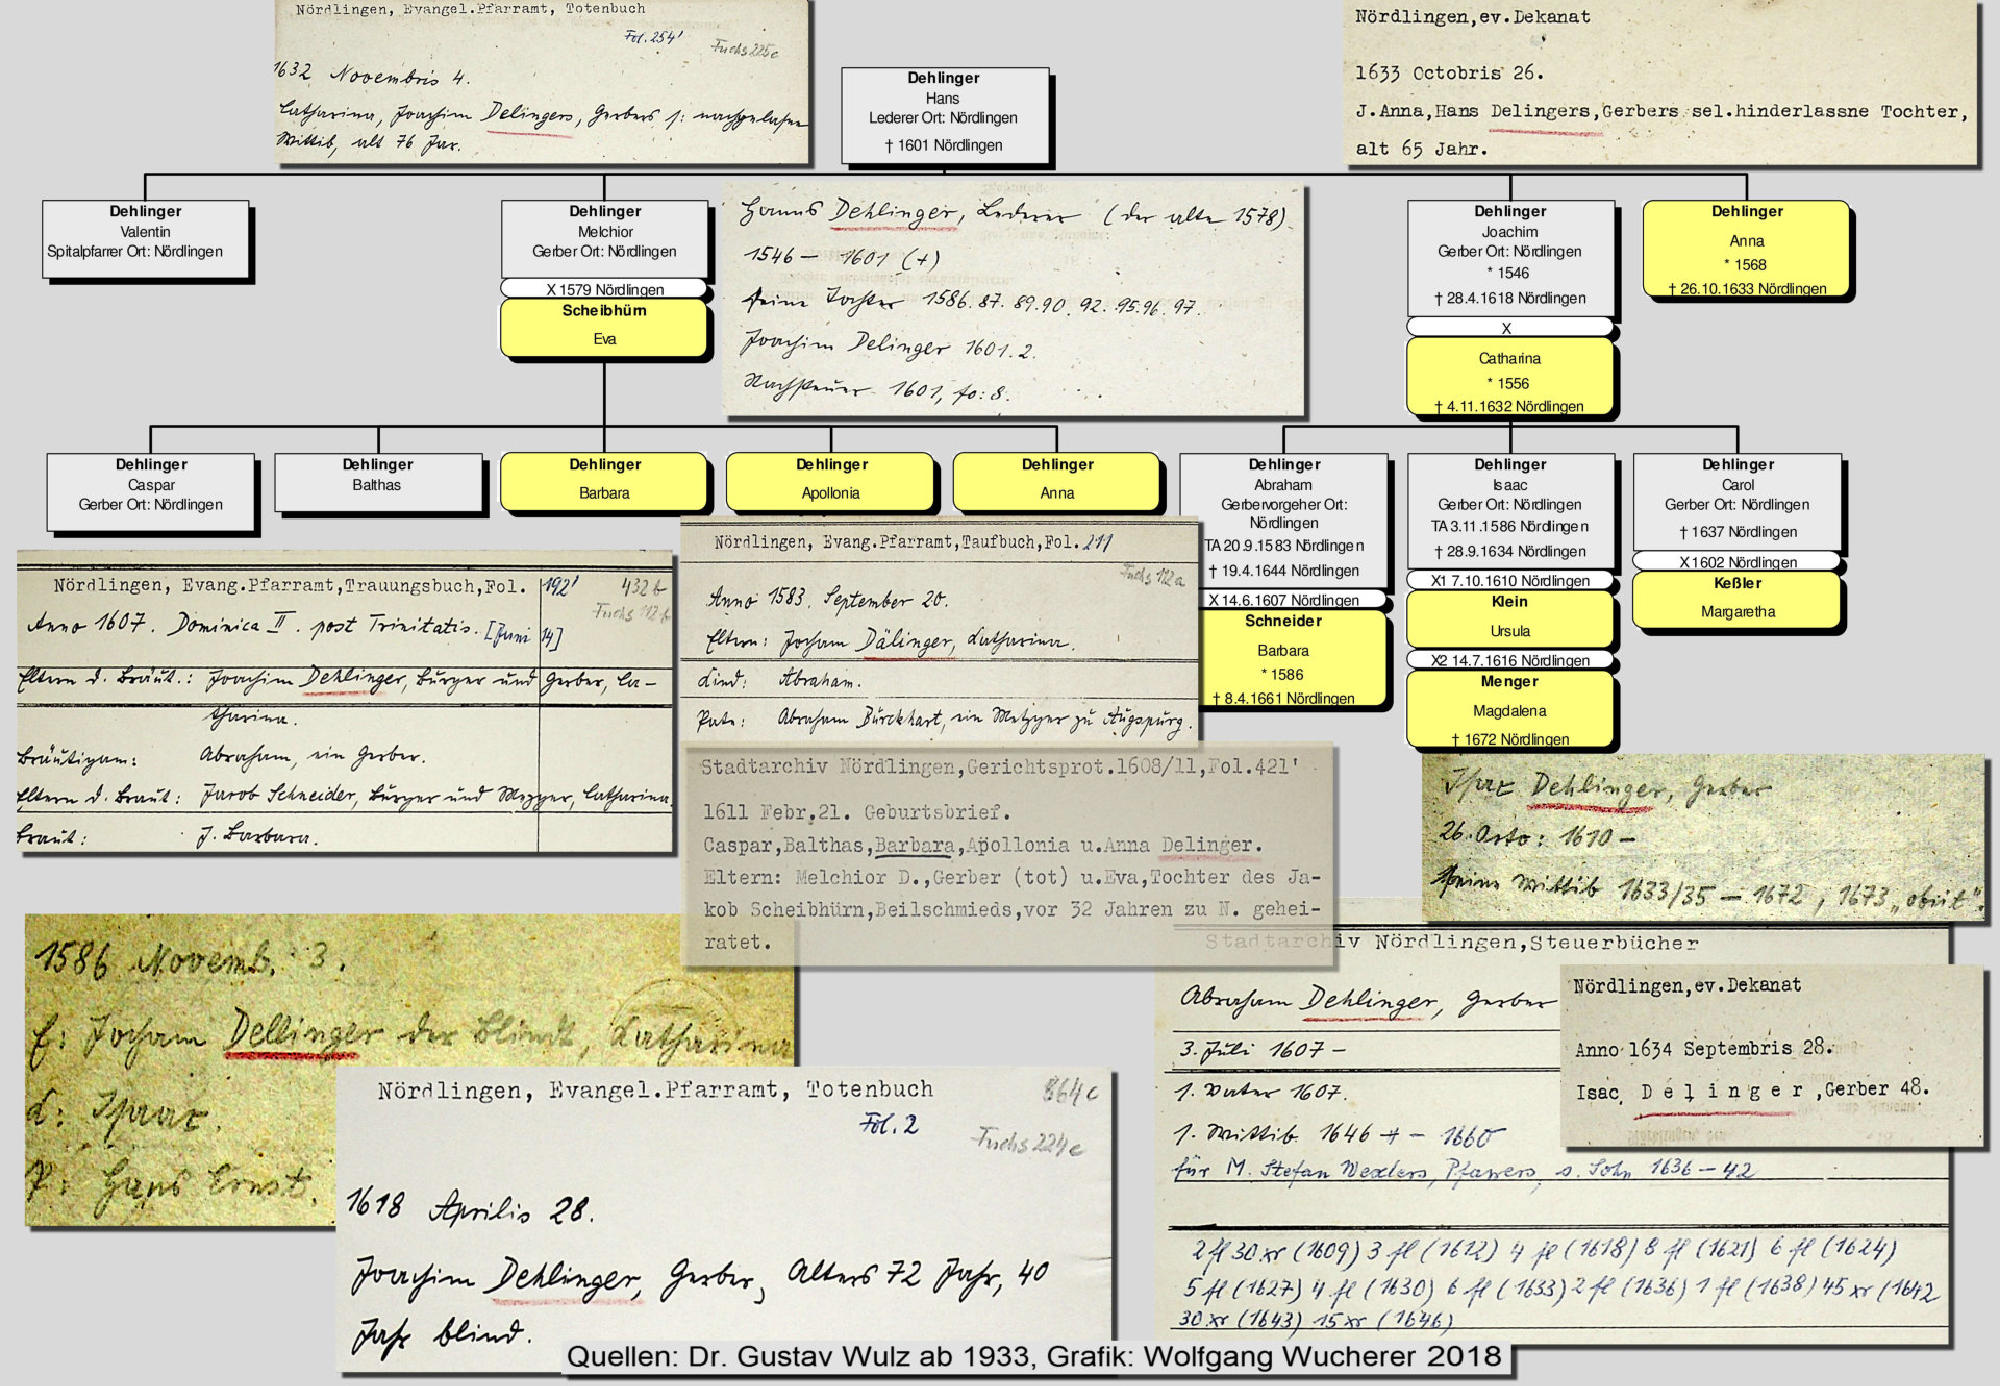 Nördlingen, Evangel.Pfarramt, Totenbuch
Fol. 254'
Fuchs 225c
1632 Novembris 4.
Catharina, Joachim Delingers, Gerbers s: nachgelassne
Wittib, alt 76 Jar.
Dehlinger
Hans
Lederer Ort: Nördlingen
† 1601 Nördlingen
Nördlingen,ev.Dekanat
1633 Octobris 26.
J.Anna,Hans Delingers,Gerbers sel.hinderlassne Tochter,
alt 65 Jahr.
Dehlinger
Valentin
Spitalpfarrer Ort: Nördlingen
Dehlinger
Melchior
Gerber Ort: Nördlingen
X 1579 Nördlingen
Scheibhürn
Eva
Hanns Dehlinger, Lederer (der alte 1578)
1546 – 1601 (+)
seine Tochter 1586. 87. 89. 90. 92. 95. 96. 97.
Joachim Delinger 1601. 2.
Nachsteuer 1601, fo: 8.
Dehlinger
Joachim
Gerber Ort: Nördlingen
* 1546
† 28.4.1618 Nördlingen
X
Catharina
* 1556
† 4.11.1632 Nördlingen
Dehlinger
Anna
* 1568
† 26.10.1633 Nördlingen
Dehlinger
Caspar
Gerber Ort: Nördlingen
Dehlinger
Balthas
Dehlinger
Barbara
Dehlinger
Apollonia
Dehlinger
Anna
Dehlinger
Abraham
Gerbervorgeher Ort:
Nördlingen
TA 20.9.1583 Nördlingen
† 19.4.1644 Nördlingen
X 14.6.1607 Nördlingen
Schneider
Barbara
* 1586
† 8.4.1661 Nördlingen
Dehlinger
Isaac
Gerber Ort: Nördlingen
TA 3.11.1586 Nördlingen
† 28.9.1634 Nördlingen
X1 7.10.1610 Nördlingen
Klein
Ursula
X2 14.7.1616 Nördlingen
Menger
Magdalena
† 1672 Nördlingen
Dehlinger
Carol
Gerber Ort: Nördlingen
† 1637 Nördlingen
X 1602 Nördlingen
Keßler
Margaretha
Nördlingen, Evang.Pfarramt,Trauungsbuch,Fol. 192'
432b
Fuchs 112b
Anno 1607. Dominica II. post Trinitatis. [Juni 14]
Eltern d. Bräut.: Joachim Dehlinger, Bürger und Gerber, Ca-
tharina.
Bräutigam: Abraham, ein Gerber.
Eltern d. Braut: Jacob Schneider, Bürger und Mezger, Catharina
Braut: J. Barbara.
Nördlingen, Evang.Pfarramt,Taufbuch,Fol. 211
Fuchs 112a
Anno 1583. September 20.
Eltern: Jocham Dälinger, Catharina.
Kind: Abraham.
Pate: Abraham Bürckhart, ein Metzger zu Augspurg.
Stadtarchiv Nördlingen,Gerichtsprot.1608/11,Fol.421'
1611 Febr.21. Geburtsbrief.
Caspar,Balthas,Barbara,Apollonia u.Anna Delinger.
Eltern: Melchior D.,Gerber (tot) u.Eva,Tochter des Ja-
kob Scheibhürn,Beilschmieds,vor 32 Jahren zu N. gehei-
ratet.
Isac Dehlinger, Gerber
26. Octo: 1610 –
seine Wittib 1633/35 – 1672, 1673 „obiit".
1586 Novemb. 3.
E: Jocham Dellinger der blindt, Catharina
K: Isaac.
P: Hans Ernst.
Nördlingen, Evangel.Pfarramt, Totenbuch
864c
Fol. 2
Fuchs 224c
1618 Aprilis 28.
Joachim Dehlinger, Gerber, Alters 72 Jahr, 40
Jahr blind.
Stadtarchiv Nördlingen,Steuerbücher
Abraham Dehlinger, Gerber
3. Juli 1607 –
1. Vater 1607.
1. Wittib. 1646 + – 1660
für M. Stefan Wexlers, Pfarrers, s. Sohn 1636 – 42
2 fl 30 xr (1609) 3 fl (1612) 4 fl (1618) 8 fl (1621) 6 fl (1624)
5 fl (1627) 4 fl (1630) 6 fl (1633) 2 fl (1636) 1 fl (1638) 45 xr (1642
30 xr (1643) 15 xr (1646)
Nördlingen,ev.Dekanat
Anno 1634 Septembris 28.
Isac Delinger,Gerber 48.
Quellen: Dr. Gustav Wulz ab 1933, Grafik: Wolfgang Wucherer 2018